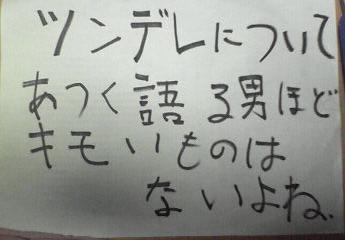 ツンデレについて
あつく語る男ほど
キモいものは
ないよね.